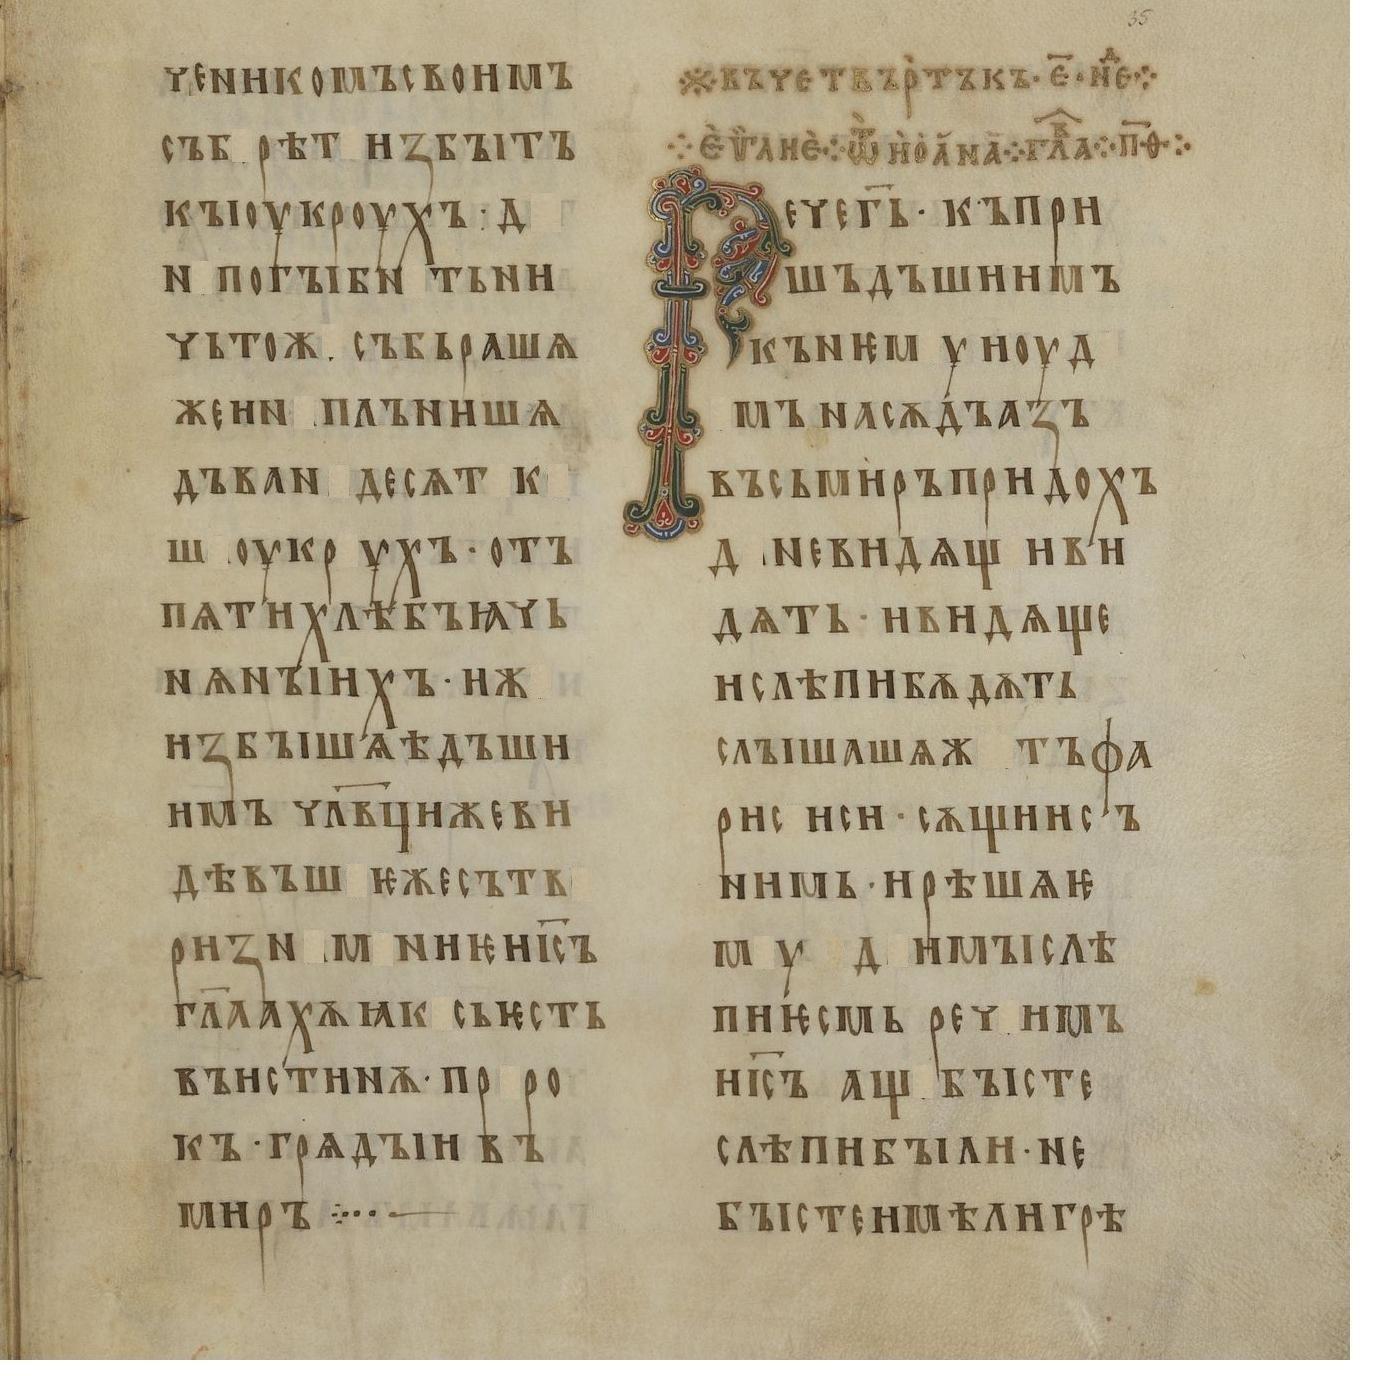 35
ꙋченикомъсвоимъ
съб рѣт избꙑт
къіоукроухъ· д
н погꙑбн тьни
чьтож събьрашѧ
жеин плънишѧ
дъван десѧт к
ш оукр ухъ·отъ
пѧтихлѣбъꙗчь
нѧнꙑихъ·иж
избꙑшѧѣдъши
имъ члв҃цижеви
дѣвъш ѥжесътв
ризн м ниѥні҃съ
гл҃аахѫꙗк сьѥсть
въистинѫ·пр ро
къ·грѧдꙑивъ
миръ
въчетвьртъкъ·е҃·нд҃е
еѵ҃глие ѿиоана гла҃в п҃ѳ
Речег҃ь·къпри
шъдъшиимъ
кънѥм у июуд
мъ насѫдъазъ
въсьмиръпридохъ
д невидѧщ ивн
дѧть·ивидѧще
ислѣпибѫдѫть
слꙑшашѧж тъфа
рис иси·сѫщиисъ
нимь·ирѣшѧѥ
м у д имꙑслѣ
пиѥсмь реч имъ
иі҃съ ащ бꙑсте
слѣпибꙑли·не
бꙑстеимѣлигрѣ